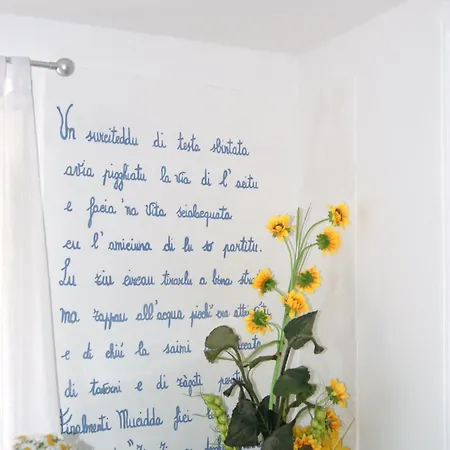 Un surciteddu di testa sbintata
avia pigghiatu la via di l'acitu
e facia 'na vita scialacquata
cu l'amiciuna di lu so partitu.
Lu ziu circau tirarlu a bona
ma zappau all'acqua pirchì era
e di chiù la saimi
di taverni e di zàgati
Finalmenti Mucidda fici